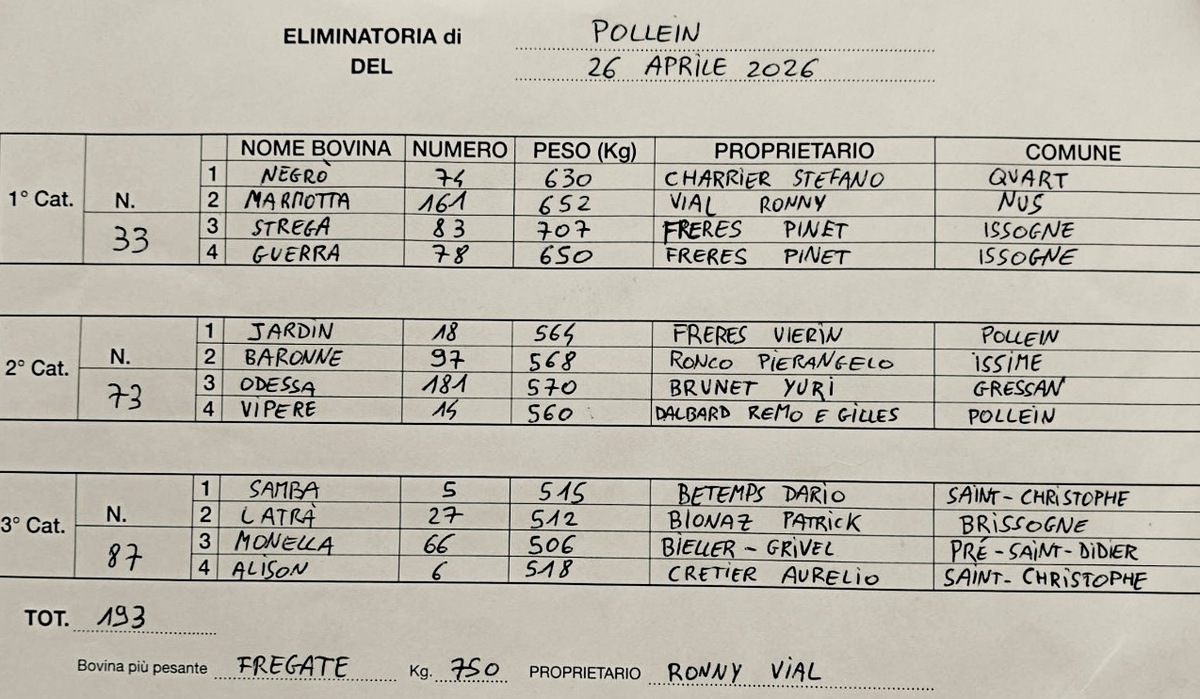 ELIMINATORIA di POLLEIN
DEL 26 APRILE 2026
NOME BOVINA NUMERO PESO (Kg) PROPRIETARIO COMUNE
1° Cat. N. 33
1 NEGRÒ 74 630 CHARRIER STEFANO QUART
2 MARMOTTA 161 652 VIAL RONNY NUS
3 STREGA 83 707 FRERES PINET ISSOGNE
4 GUERRA 78 650 FRERES PINET ISSOGNE
2° Cat. N. 73
1 JARDIN 18 564 FRERES VIERIN POLLEIN
2 BARONNE 97 568 RONCO PIERANGELO ISSIME
3 ODESSA 181 570 BRUNET YURI GRESSAN
4 VIPERE 14 560 DALBARD REMO E GILLES POLLEIN
3° Cat. N. 87
1 SAMBA 5 515 BETEMPS DARIO SAINT-CHRISTOPHE
2 LATRÀ 27 512 BIONAZ PATRICK BRISSOGNE
3 MONELLA 66 506 BIELLER-GRIVEL PRÉ-SAINT-DIDIER
4 ALISON 6 518 CRETIER AURELIO SAINT-CHRISTOPHE
TOT. 193
Bovina più pesante FREGATE Kg. 750 PROPRIETARIO RONNY VIAL